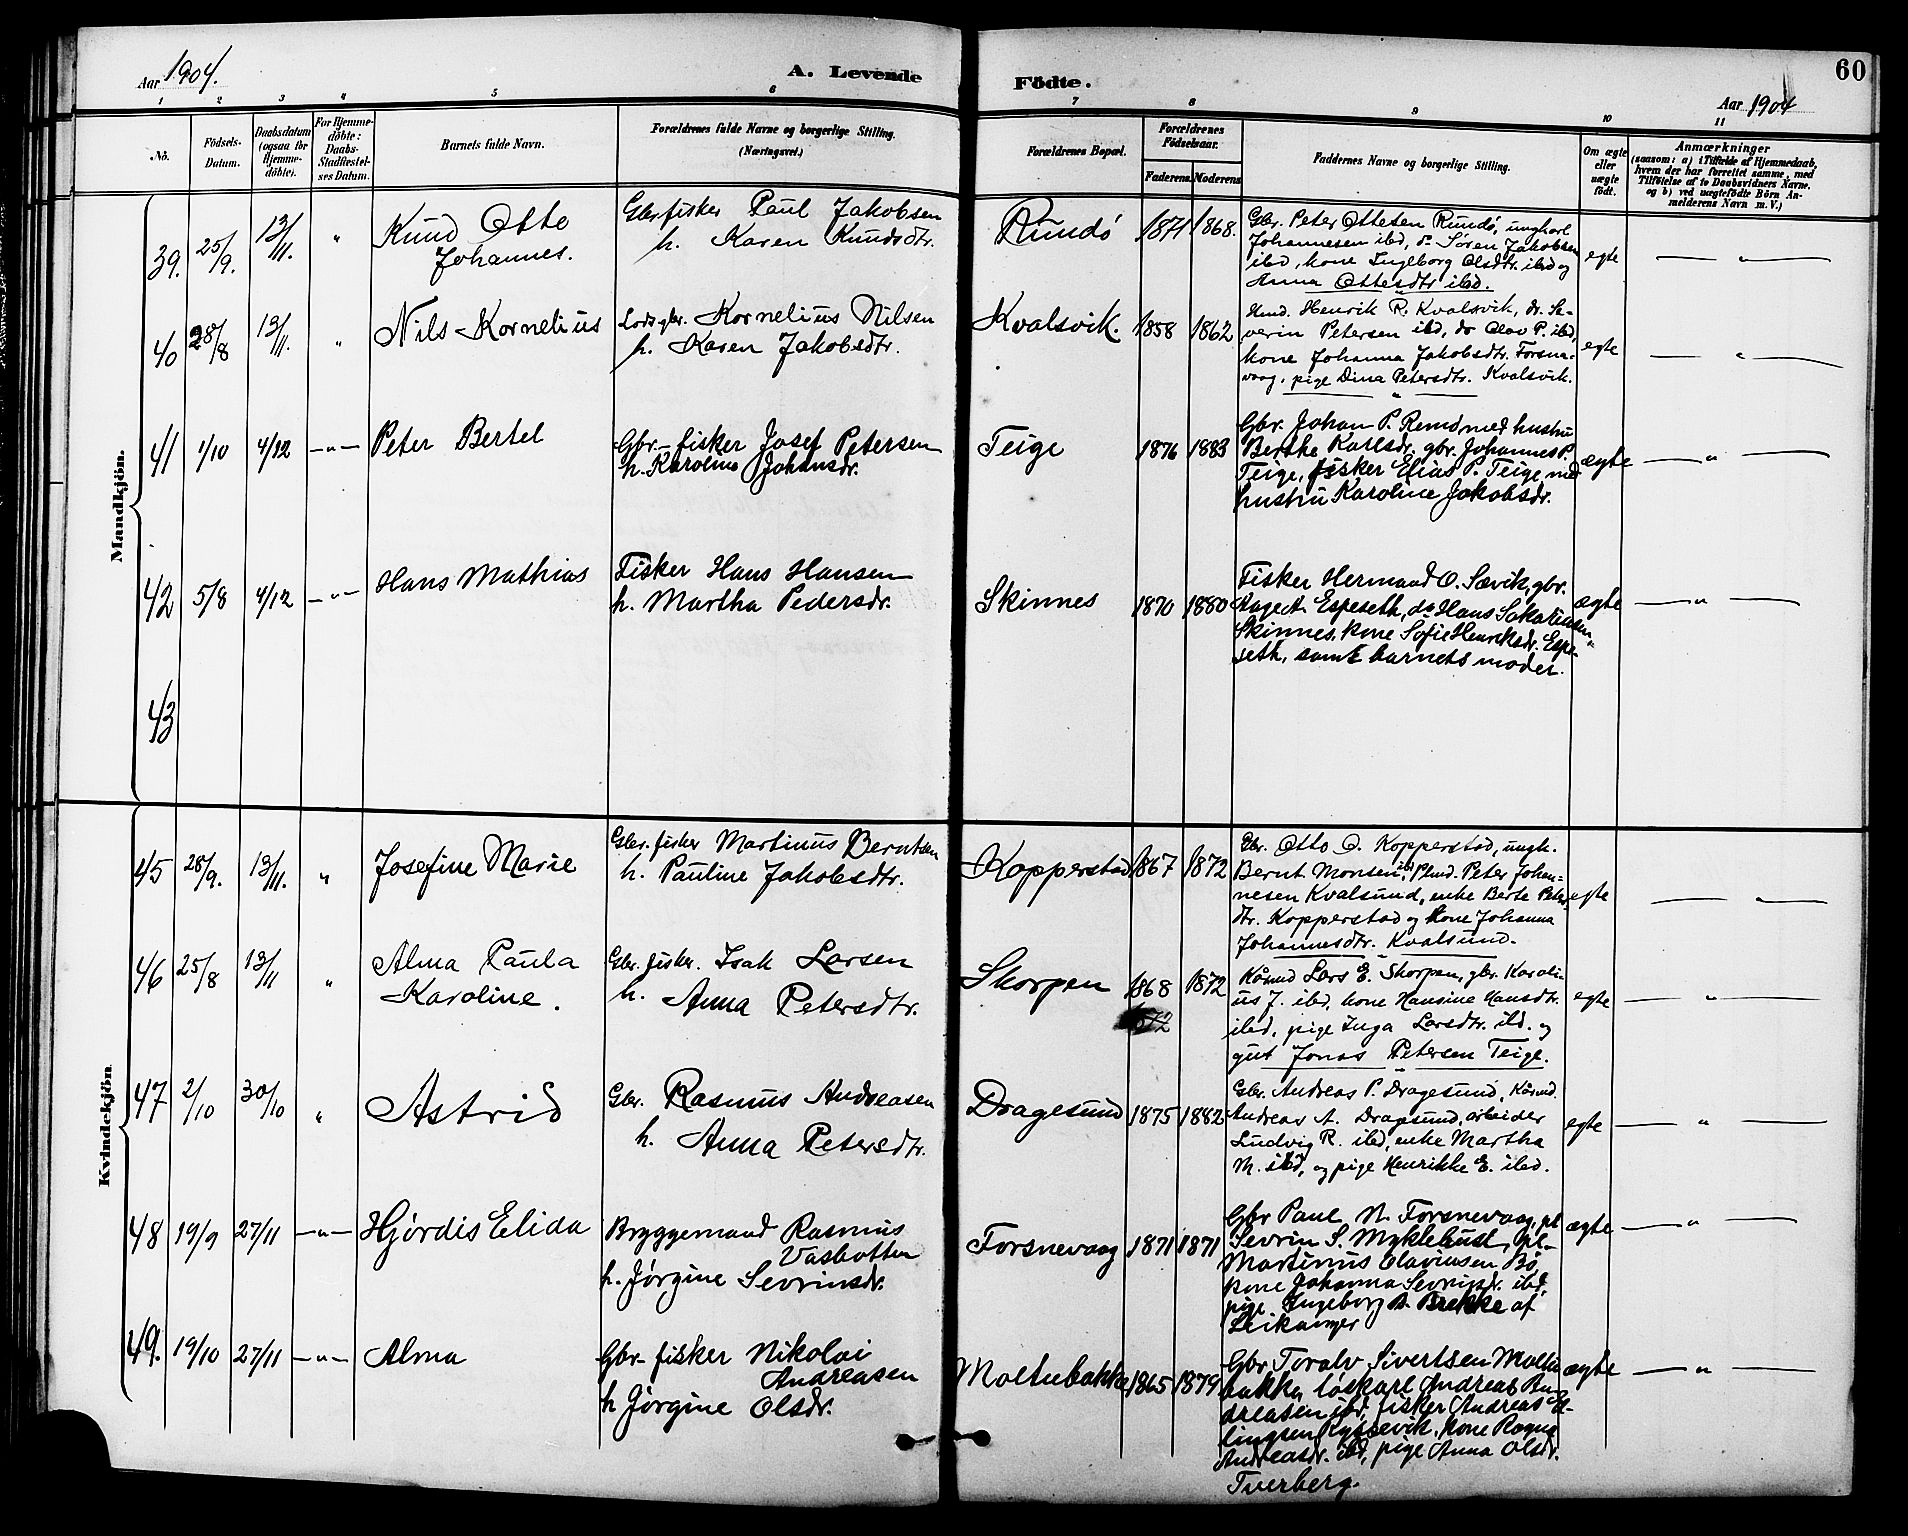 Aar 1904.
A. Levende Födte.
60
Aar 1904
1 2 3 4 5 6 7 8 9 10 11
No.
Födsels-Datum.
Daabsdatum (ogsaa for Hjemmedöbte).
For Hjemmedöbte: Daabs-Stadfæstelses Datum.
Barnets fulde Navn.
Forældrenes fulde Navne og borgerlige Stilling. (Næringsvei.)
Forældrenes Bopæl.
Forældrenes Födselsaar.
Faderens. Moderens
Faddernes Navne og borgerlige Stilling.
Om ægte eller uægte födt.
Anmærkninger
(saasom: a) i Tilfælde af Hjemmedaab,
hvem der har forrettet samme, med
Tilföielse af to Daabsvidners Navne.
og b) ved uægtefödte Börn An-
melderens Navn m. V.)
Mandkjön.
39. 25/9. 13/11. " Knud Otto
Johannes.
Gbr. fisker Paul Jakobsen
h. Karen Knudsdtr.
Rundø 1871 1868.
Gbr. Peter Ottesen Rundø, ungkarl
Johannesen ibd, do Søren Jakobsen
ibd, kone Ingeborg Olsdtr. ibd og
Anna Ottesdtr ibd.
egte — " —
40 28/8 13/11. " Nils Kornelius
Lods gbr. Kornelius Nilsen
h. Karen Jakobsdtr.
Kvalsvik. 1858 1862
Henrik R. Kvalsvik, do. Se-
verin Petersen ibd, do Olav P. ibd,
kone Johanna Jakobsdtr. Forsne-
vaag, pige Dina Petersdtr. Kvalsvik.
egte — " —
41 1/10 4/12 —"— Peter Bertel
Gbr-fisker Josef Petersen
h. Karoline Johansdr.
Teige 1876 1883
Gbr. Johan P. Remø med hustru
Berthe Karlsdr, gbr. Johannes P.
Teige, fisker Elias P. Teige med
hustru Karoline Jakobsdr.
ægte — " —
42 5/8 4/12 —"— Hans Mathias
Fisker Hans Hansen
h. Martha Pedersdr.
Skinnes 1870 1880
Fisker Hermand O. Sævik, gbr.
Aage A. Espeseth, do Hans
Skinnes, kone Sofie Henriksdr. Espe-
seth, samt barnets moder.
ægte — " —
43
Kvindekjön
45 28/9. 13/11. " Josefine Marie
Gbr. fisker Martinus Berntsen
h. Pauline Jakobsdtr.
Kopperstad 1867 1872
Gbr. Otto O. Kopperstad, ungk.
Bernt Monsen ibd, Peter Johan-
nesen Kvalsund, enke Berte Peters-
dtr. Kopperstad og kone Johanna
Johannesdtr. Kvalsund.
egte — " —
46 25/8 13/11 " Alma Paula
Karoline.
Gbr. fisker. Isak Larsen
h. Anna Petersdtr.
Skorpen 1868 1872
Kårmd Lars E. Skorpen, gbr. Karoli-
us J. ibd, kone Hansine Hansdtr.
ibd, pige Inga Larsdtr. ibd. og
gut Jonas Petersen Teige.
egte — " —
47 2/10 30/10 " Astrid
Gbr. Rasmus Andreasen
h. Anna Petersdtr.
Dragesund 1875 1882
Gbr. Andreas P. Dragesund, Kårmd.
Andreas A. Dragsund, arbeider
Ludvig R. ibd, enke Martha
M. ibd, og pige Henrikke E. ibd.
egte — " —
48 19/9 27/11 —"— Hjørdis Elida
Bryggemand Rasmus
Vasbotten
h. Jørgine Sevrinsdr.
Forsnevaag 1871 1871
Gbr Paul N. Forsnevaag, pl
Sevrin S. Myklebust,
Martinus Olavinsen Bø,
kone Johanna Sevrinsdr. ibd,
pige Ingeborg A. Brekke af
Leikanger
ægte — " —
49. 19/10 27/11 —"— Alma
Gbr-fisker Nikolai
Andreasen
h Jørgine Olsdr.
Moltubakke 1865 1879
Gbr Toralv Sivertsen Moltu-
bakke, løskarl Andreas An-
dreasen ibd, fisker Andreas El-
lingsen kone Ragna
Andreasdr. ibd, pige Anna Olsdr.
Tverberg.
ægte — " —